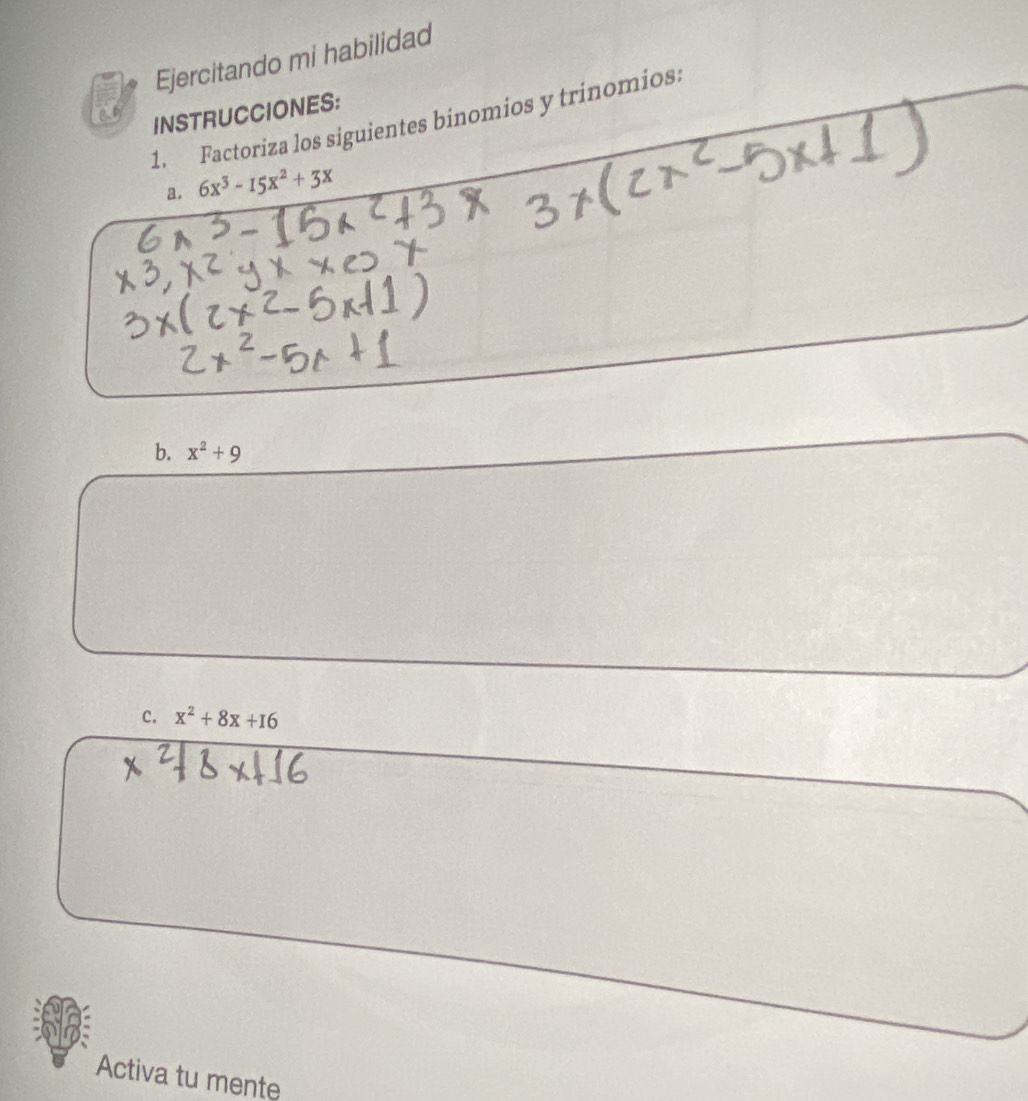 Ejercitando mi habilidad
INSTRUCCIONES:
1. Factoriza los siguientes binomios y trinomios:
a. 6x³ - 15x² + 3x
6x³ - 15x² + 3x 3x(2x² - 5x + 1)
x3, x² y x x es x
3x(2x² - 5x + 1)
2x² - 5x + 1
b. x² + 9
c. x² + 8x + 16
x² + 8x + 16
Activa tu mente